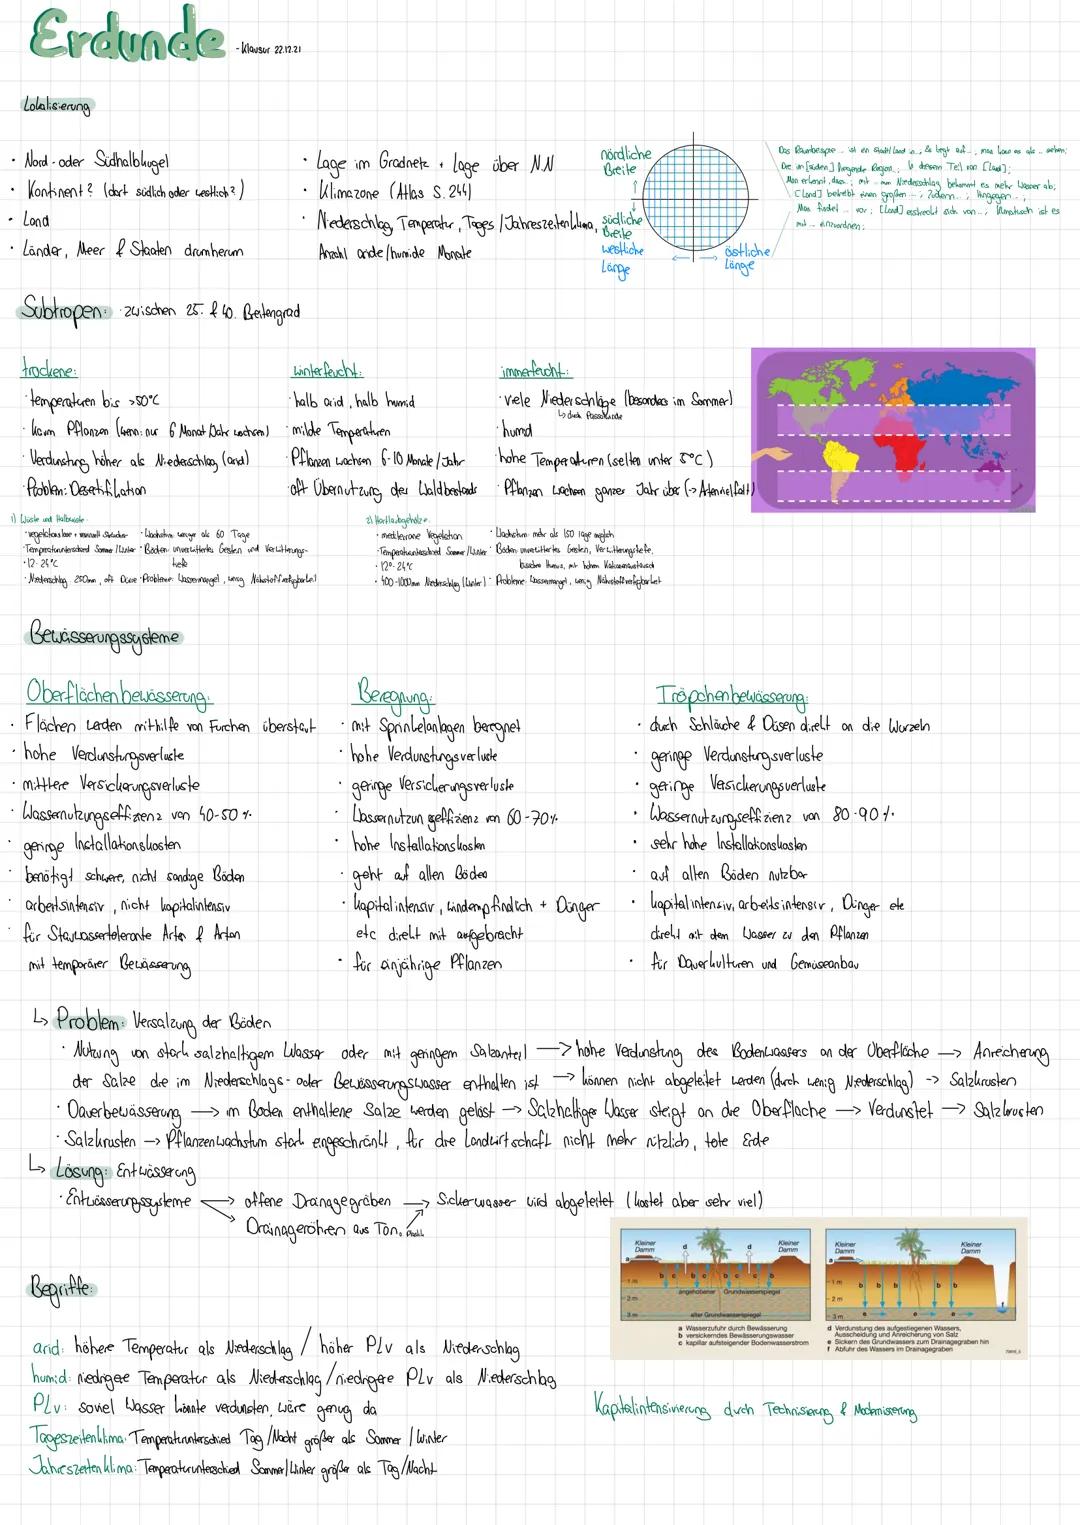 Erdunde - Klausur 22.12.21
Lokalisierung
· Nord- oder Südhalbkugel
· Kontinent? (dort südlich oder westlich?)
· Land
· Länder, Meer & Staaten drumherum
· Lage im Gradnetz + Lage über N.N
· Klimazone (Atlas S. 244)
· Niederschlag, Temperatur, Tages/Jahreszeitenklima,
Anzahl aride/humide Monate
nördliche
Breite
südliche
Breite
westliche
Länge
östliche
Länge
Das Raumbeispiel ... ist ein Stadt/Land in ..., Es liegt auf ..., man kann es als ... sehen;
Die im [Süden] liegende Region ...; In diesem Teil von [Land];
Man erkennt, dass ...; mit ... mm Niederschlag bekommt es mehr Wasser ab;
[Land] betreibt einen großen ...; Zudem ...; Hingegen ...;
Man findet ... vor; [Land] erstreckt sich von ...; Klimatisch ist es
mit ... einzuordnen;
Subtropen: · zwischen 25. & 40. Breitengrad
trockene:
· temperaturen bis >50°C
· kaum Pflanzen (wenn: nur 6 Monat/Jahr wachsen)
· Verdunstung höher als Niederschlag (arid)
· Problem: Desertifikation
winterfeucht:
· halb arid, halb humid
· milde Temperaturen
· Pflanzen wachsen 6-10 Monate/Jahr
· oft Übernutzung des Waldbestands
immerfeucht:
· viele Niederschläge (besonders im Sommer)
↳ durch Passatwinde
· humid
· hohe Temperaturen (selten unter 5°C)
· Pflanzen wachsen ganzes Jahr über (-> Artenvielfalt)
1) Wüste und Halbwüste
· Temperaturunterschied Sommer/Winter
· 12-24°C
· Niederschlag 250mm, oft Dürre
· Wachstum weniger als 60 Tage
· Böden: unverwittertes Gestein und Verwitterungs-
tiefe
· Probleme: Wassermangel, wenig Nährstoffverfügbarkeit
2) Hartlaubgehölze
· mediterrane Vegetation
· Temperaturunterschied Sommer/Winter
· 12°-24°C
· 400-1000mm Niederschlag (Winter)
· Wachstum: mehr als 150 Tage möglich
· Böden: unverwittertes Gestein, Verwitterungstiefe,
bisschen Humus, mit hohem Kationenaustausch
· Probleme: Wassermangel, wenig Nährstoffverfügbarkeit
Bewässerungssysteme
Oberflächenbewässerung:
· Flächen werden mithilfe von Furchen überstaut
· hohe Verdunstungsverluste
· mittlere Versickerungsverluste
· Wassernutzungseffizienz von 40-50 %.
· geringe Installationskosten
· benötigt schwere, nicht sandige Böden
· arbeitsintensiv, nicht kapitalintensiv
· für Stauwassertolerante Arten & Arten
mit temporärer Bewässerung
Beregnung:
· mit Sprinkelanlagen beregnet
· hohe Verdunstungsverluste
· geringe Versickerungsverluste
· Wassernutzungseffizienz von 60-70%.
· hohe Installationskosten
· geht auf allen Böden
· kapitalintensiv, windempfindlich + Dünger
etc direkt mit aufgebracht
· für einjährige Pflanzen
Tröpchenbewässerung:
· durch Schläuche & Düsen direkt an die Wurzeln
· geringe Verdunstungsverluste
· geringe Versickerungsverluste
· Wassernutzungseffizienz von 80-90%.
· sehr hohe Installationskosten
· auf allen Böden nutzbar
· kapitalintensiv, arbeitsintensiv, Dünger etc
direkt mit dem Wasser zu den Pflanzen
· für Dauerkulturen und Gemüseanbau
↳ Problem: Versalzung der Böden
· Nutzung von stark salzhaltigem Wasser oder mit geringem Salzanteil → hohe Verdunstung des Bodenwassers an der Oberfläche → Anreicherung
der Salze die im Niederschlags- oder Bewässerungswasser enthalten ist → können nicht abgeleitet werden (durch wenig Niederschlag) -> Salzkrusten
· Dauerbewässerung → im Boden enthaltene Salze werden gelöst → Salzhaltiges Wasser steigt an die Oberfläche → Verdunstet → Salzkrusten
· Salzkrusten → Pflanzenwachstum stark eingeschränkt, für die Landwirtschaft nicht mehr nützlich, tote Erde
↳ Lösung: Entwässerung
· Entwässerungssysteme → offene Drainagegräben → Sickerwasser wird abgeleitet (kostet aber sehr viel)
Drainageröhren aus Ton, Plastik
Kleiner Damm
Kleiner Damm
a d d
b c b c b c b
1 m
2 m
3 m
angehobener Grundwasserspiegel
alter Grundwasserspiegel
a Wasserzufuhr durch Bewässerung
b versickerndes Bewässerungswasser
c kapillar aufsteigender Bodenwasserstrom
Kleiner Damm
Kleiner Damm
a
b b b b b
1 m
2 m
3 m
e e e f
d Verdunstung des aufgestiegenen Wassers,
Ausscheidung und Anreicherung von Salz
e Sickern des Grundwassers zum Drainagegraben hin
f Abfuhr des Wassers im Drainagegraben
Begriffe:
arid: höhere Temperatur als Niederschlag / höher PLv als Niederschlag
humid: niedrigere Temperatur als Niederschlag/niedrigere PLv als Niederschlag
PLv: soviel Wasser könnte verdunsten, wäre genug da
Tageszeitenklima: Temperaturunterschied Tag/Nacht größer als Sommer/Winter
Jahreszeitenklima: Temperaturunterschied Sommer/Winter größer als Tag/Nacht
Kapitalintensivierung durch Technisierung & Modernisierung